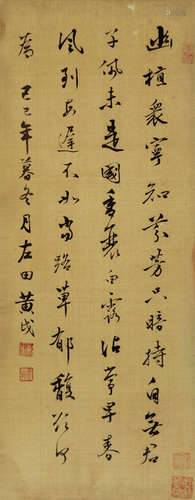 幽植衆寧知芬芳只暗持自無君
子佩未是國香衰白露沾常早春
風到每遲不如當路草郁馥欲何
為 己巳年暮冬月左田黃戉